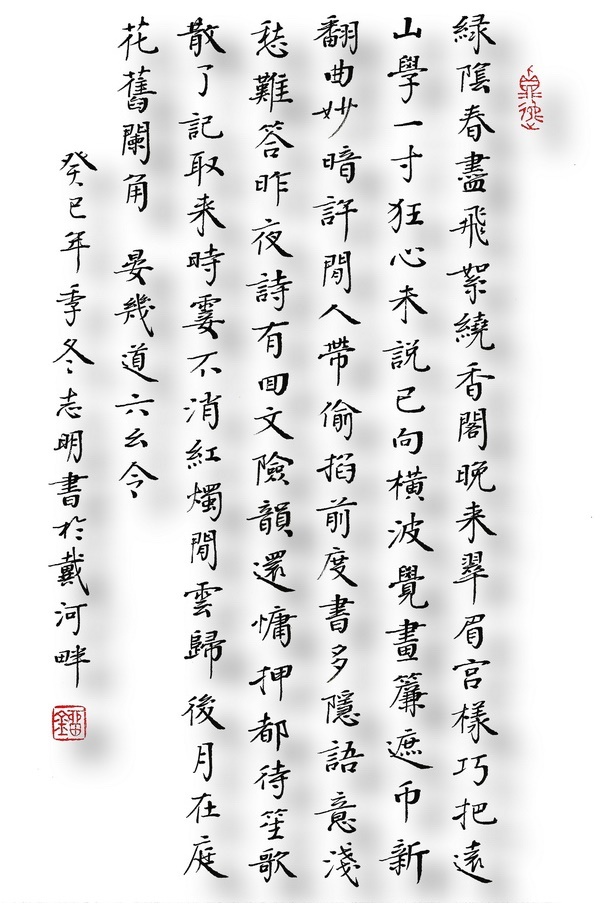 綠隂春盡飛絮繞香閣晚来翠眉宫樣巧把遠
山學一寸狂心未説已向横波覺畫簾遮帀新
翻曲妙暗許閒人帶偷掐前度書多隱語意淺
愁難答昨夜詩有回文險韻還慵押都待笙歌
散了記取来時霎不消紅燭閒雲歸後月在庭
花舊闌角 晏幾道六幺令
癸巳年季冬志明書於戴河畔